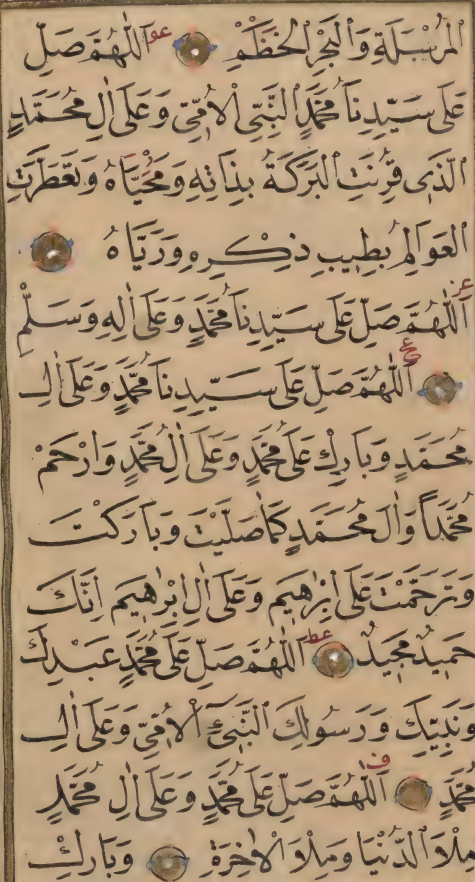 ٱلْمُرْسَلَةِ وَٱلْبَحْرِ ٱلْخِضَمِّ عو ٱللّٰهُمَّ صَلِّ
عَلَى سَيِّدِنَا مُحَمَّدٍ ٱلنَّبِيِّ ٱلْأُمِّيِّ وَعَلَى اٰلِ مُحَمَّدٍ
ٱلَّذِى قُرِنَتِ ٱلْبَرَكَةُ بِذَاتِهِ وَمُحَيَّاهُ وَتَعَطَّرَتِ
ٱلْعَوَالِمُ بِطِيبِ ذِكْرِهِ وَرَيَّاهُ
عز
ٱللّٰهُمَّ صَلِّ عَلَى سَيِّدِنَا مُحَمَّدٍ وَعَلَى اٰلِهِ وَسَلِّمْ
عح
ٱللّٰهُمَّ صَلِّ عَلَى سَيِّدِنَا مُحَمَّدٍ وَعَلَى اٰلِ
مُحَمَّدٍ وَبَارِكْ عَلَى مُحَمَّدٍ وَعَلَى اٰلِ مُحَمَّدٍ وَارْحَمْ
مُحَمَّدًا وَاٰلَ مُحَمَّدٍ كَمَا صَلَّيْتَ وَبَارَكْتَ
وَتَرَحَّمْتَ عَلَى اِبْرٰهِيمَ وَعَلَى اٰلِ اِبْرٰهِيمَ اِنَّكَ
حَمِيدٌ مَجِيدٌ عط ٱللّٰهُمَّ صَلِّ عَلَى مُحَمَّدٍ عَبْدِكَ
وَنَبِيِّكَ وَرَسُولِكَ ٱلنَّبِيِّ ٱلْأُمِّيِّ وَعَلَى اٰلِ
مُحَمَّدٍ ف ٱللّٰهُمَّ صَلِّ عَلَى مُحَمَّدٍ وَعَلَى اٰلِ مُحَمَّدٍ
مِلْأَ ٱلدُّنْيَا وَمِلْأَ ٱلْاٰخِرَةِ وَبَارِكْ